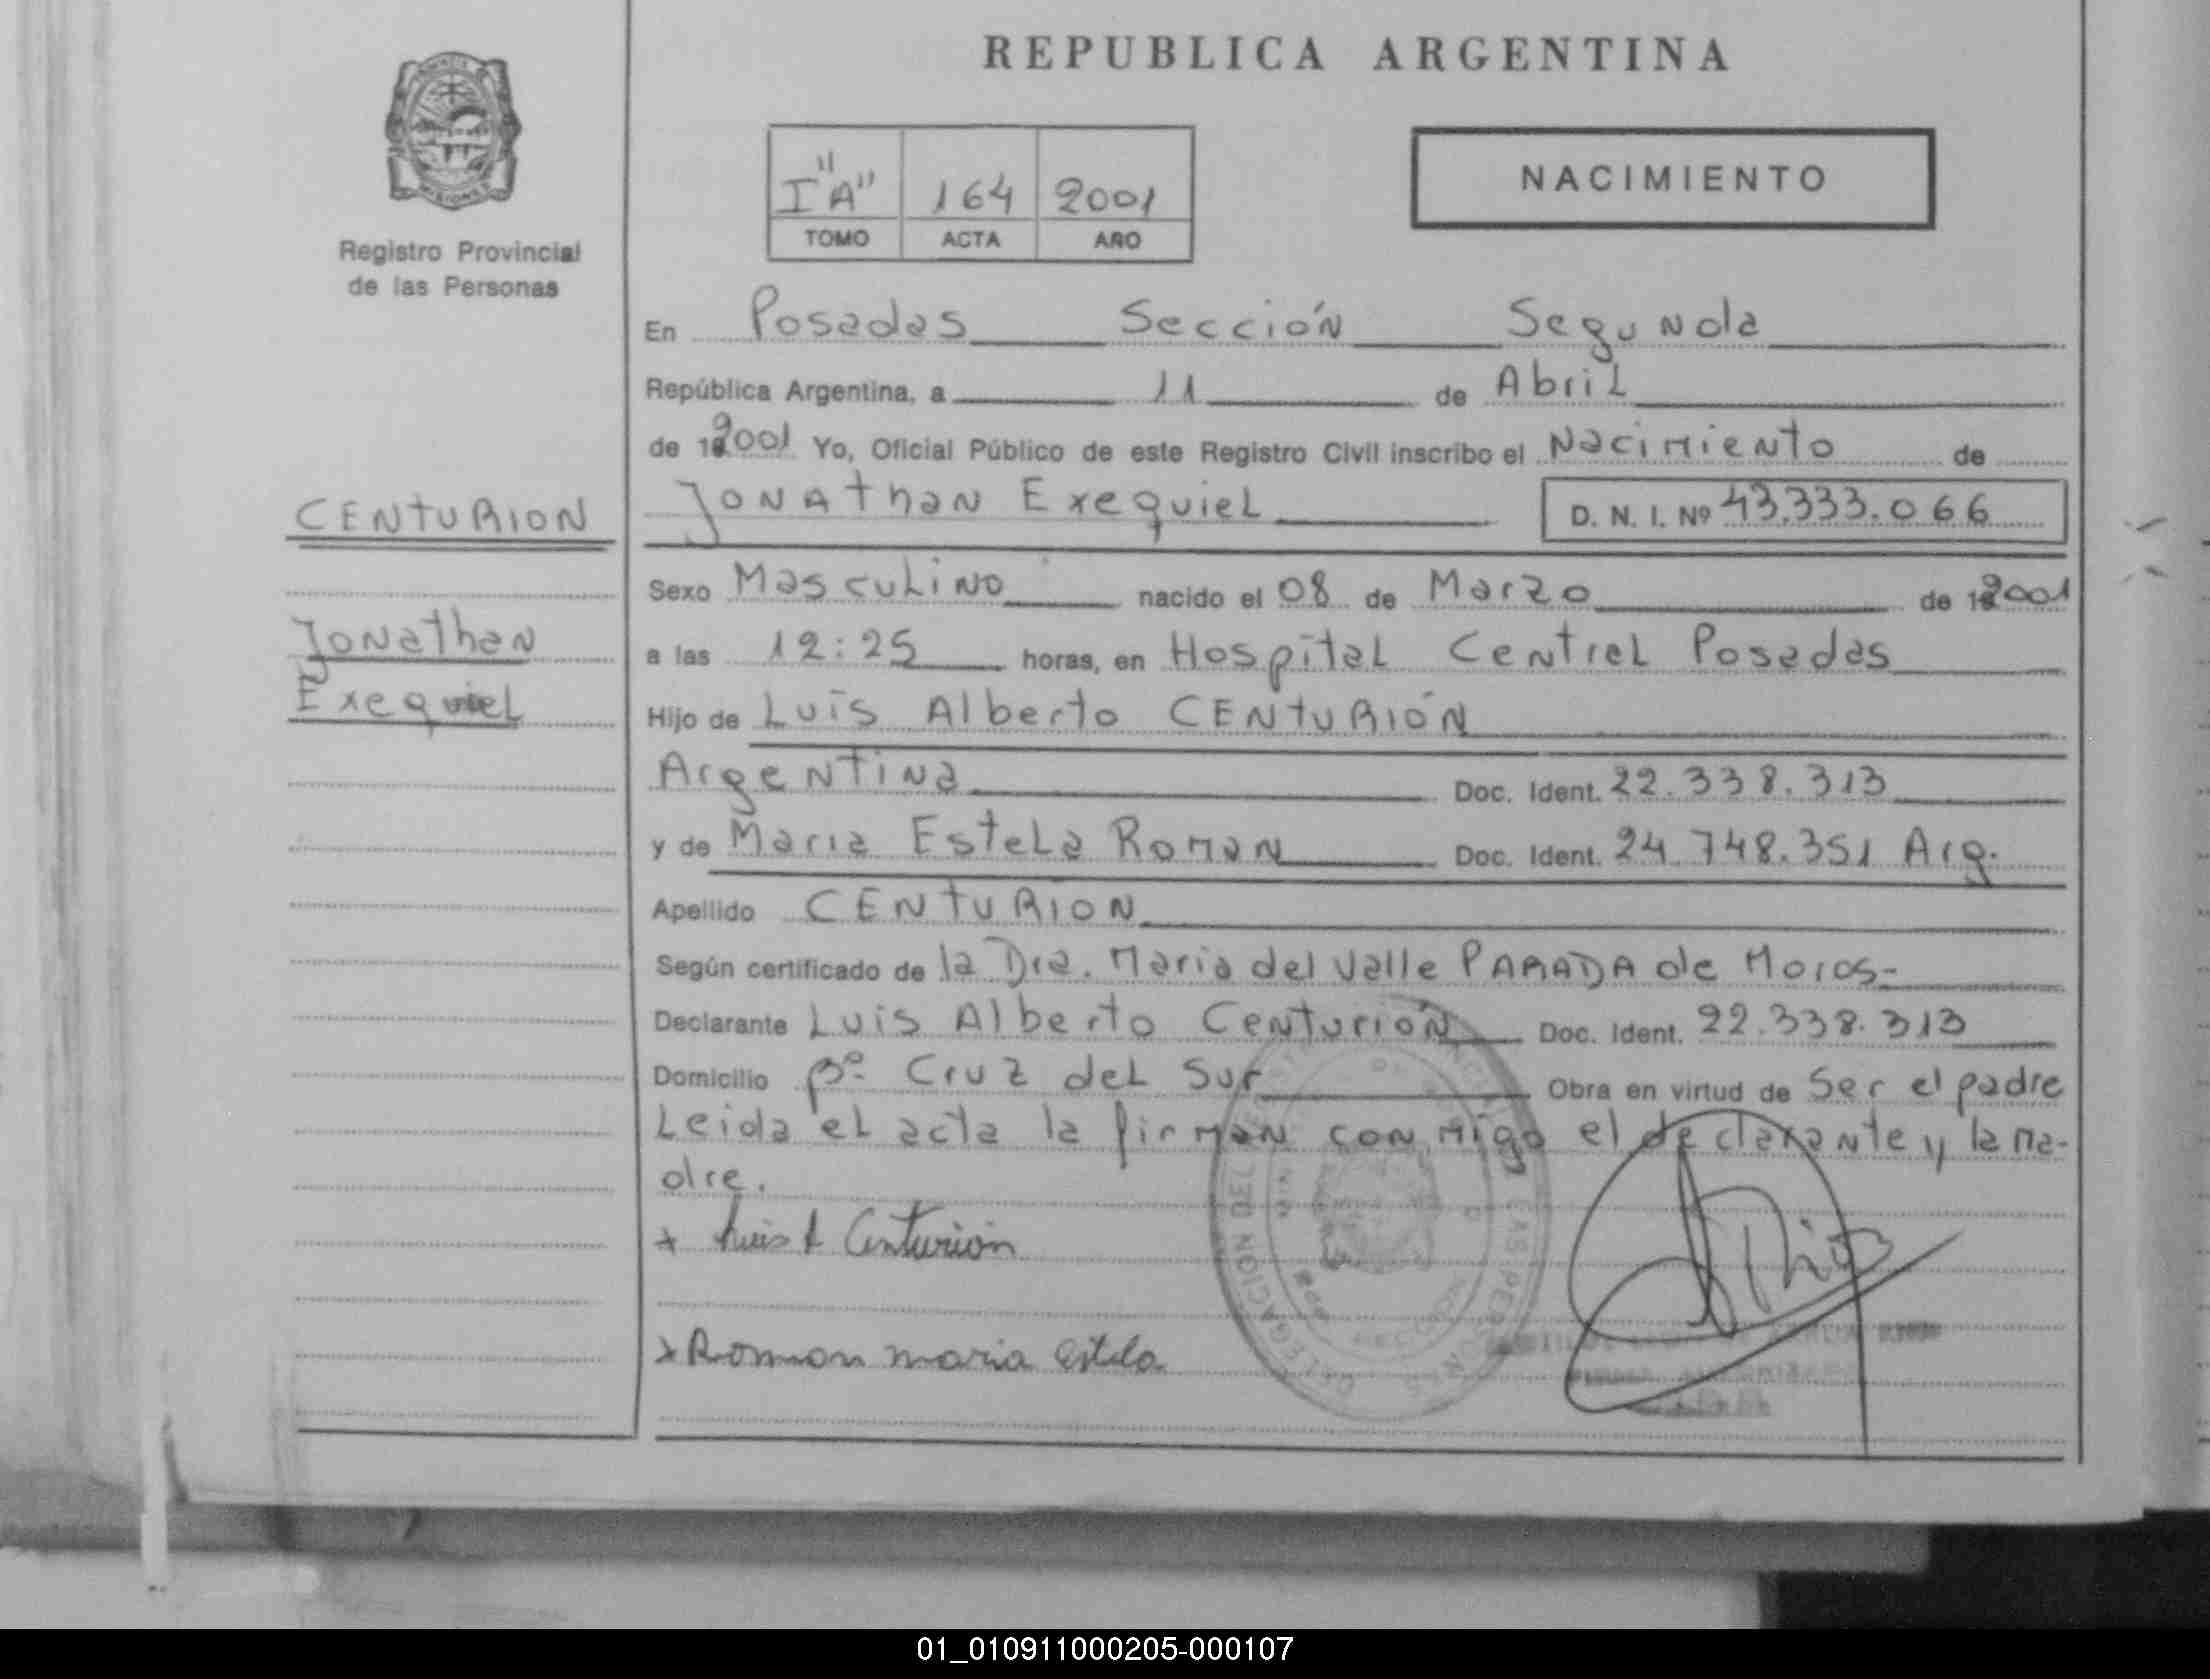 REPUBLICA ARGENTINA
MISIONES
Registro Provincial
de las Personas
I "A" 164 2001
TOMO ACTA AÑO
NACIMIENTO
En Posadas Sección Segunda
República Argentina, a 11 de Abril
de 2001 Yo, Oficial Público de este Registro Civil inscribo el Nacimiento de
CENTURION
Jonathan Exequiel D. N. I. Nº 43.333.066
Sexo Masculino nacido el 08 de Marzo de 2001
Jonathan
a las 12:25 horas, en Hospital Central Posadas
Exequiel
Hijo de Luis Alberto CENTURIÓN
Argentina Doc. Ident. 22.338.313
y de Maria Estela Roman Doc. Ident. 24.748.351 Arg.
Apellido CENTURION
Según certificado de la Dra. Maria del Valle PARADA de Moros-
Declarante Luis Alberto Centurión Doc. Ident. 22.338.313
Domicilio Bº Cruz del Sur Obra en virtud de Ser el padre
Leida el acta la firman conmigo el declarante y la ma-
dre.
Luis A Centurión
Roman maria Estela
DELEGACION DEL
01_010911000205-000107